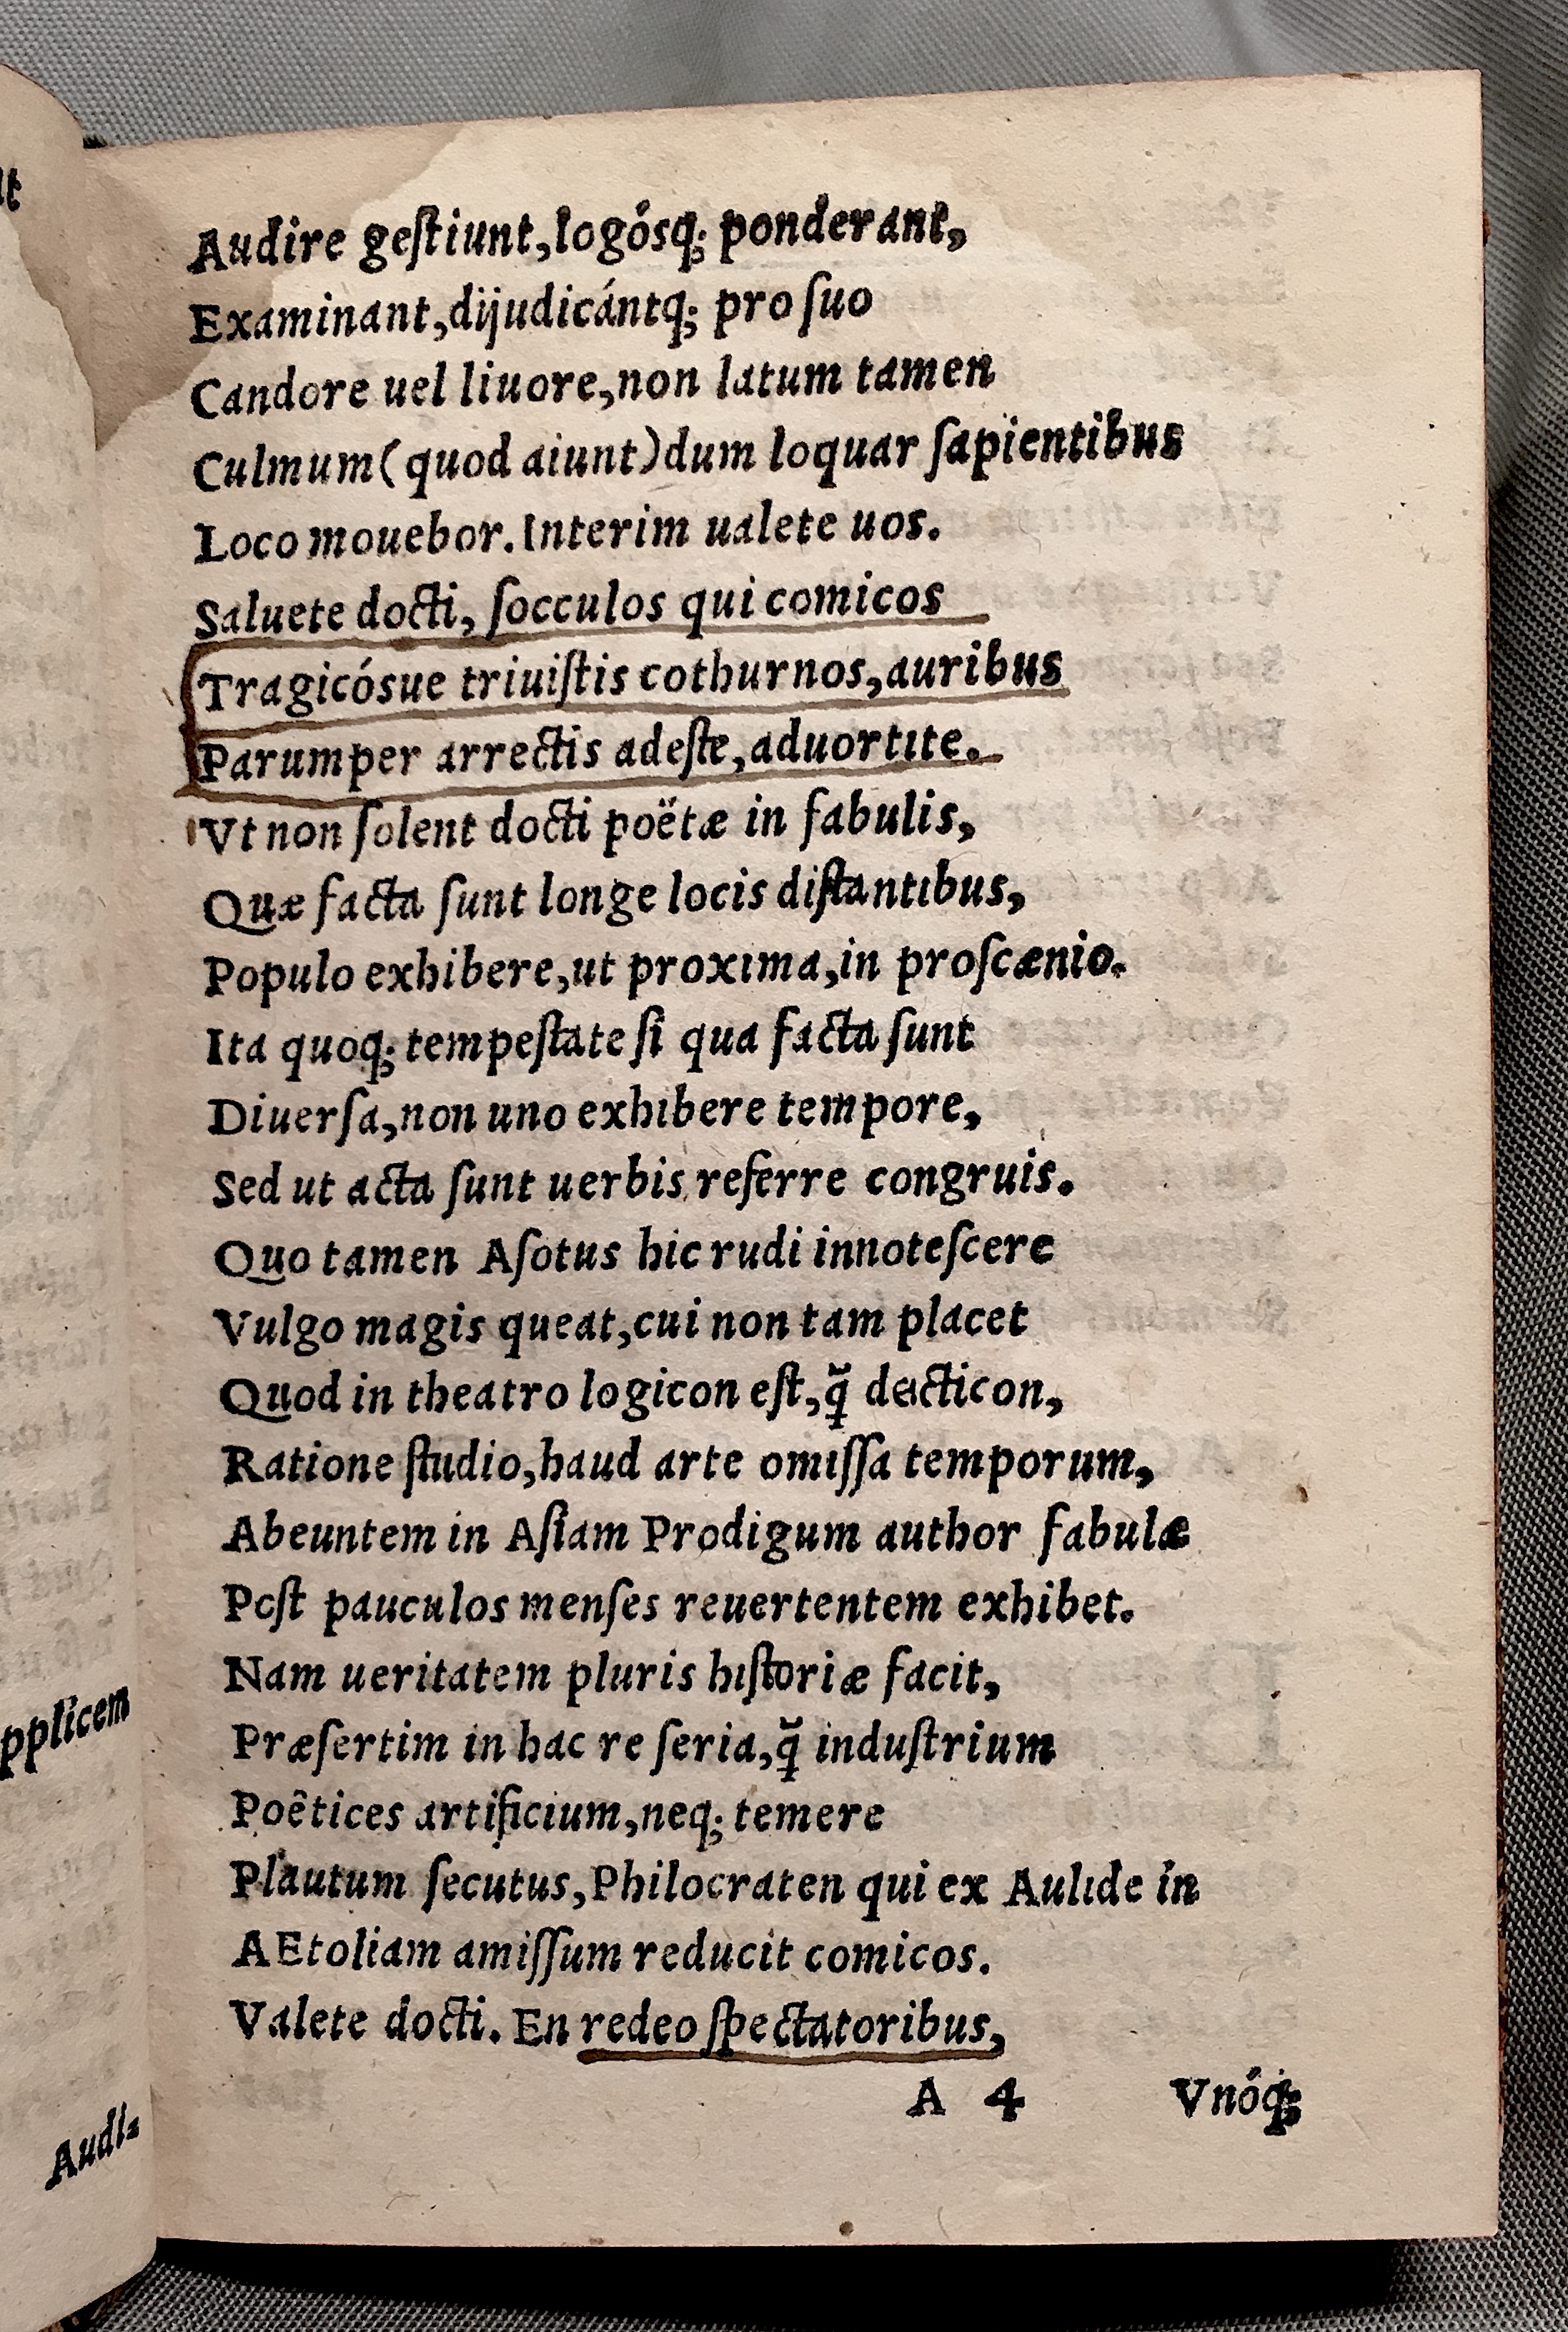 Audire geſtiunt, logósq; ponderant,
Examinant, dijudicántq; pro ſuo
Candore uel liuore, non latum tamen
Culmum (quod aiunt) dum loquar ſapientibus
Loco mouebor. Interim ualete uos.
Saluete docti, ſocculos qui comicos
Tragicósue triuiſtis cothurnos, auribus
Parumper arrectis adeſte, aduortite.
Vt non ſolent docti poëtæ in fabulis,
Quæ facta ſunt longe locis diſtantibus,
Populo exhibere, ut proxima, in proſcænio.
Ita quoq; tempeſtate ſi qua facta ſunt
Diuerſa, non uno exhibere tempore,
Sed ut acta ſunt uerbis referre congruis.
Quo tamen Aſotus hic rudi innoteſcere
Vulgo magis queat, cui non tam placet
Quod in theatro logicon eſt, q̃ deicticon,
Ratione ſtudio, haud arte omiſſa temporum,
Abeuntem in Aſiam Prodigum author fabulæ
Poſt pauculos menſes reuertentem exhibet.
Nam ueritatem pluris hiſtoriæ facit,
Præſertim in hac re ſeria, q̃ induſtrium
Poêtices artificium, neq; temere
Plautum ſecutus, Philocraten qui ex Aulide in
AEtoliam amiſſum reducit comicos.
Valete docti. En redeo ſpectatoribus,
A 4 Vnóq;
pplicem
Audi⸗